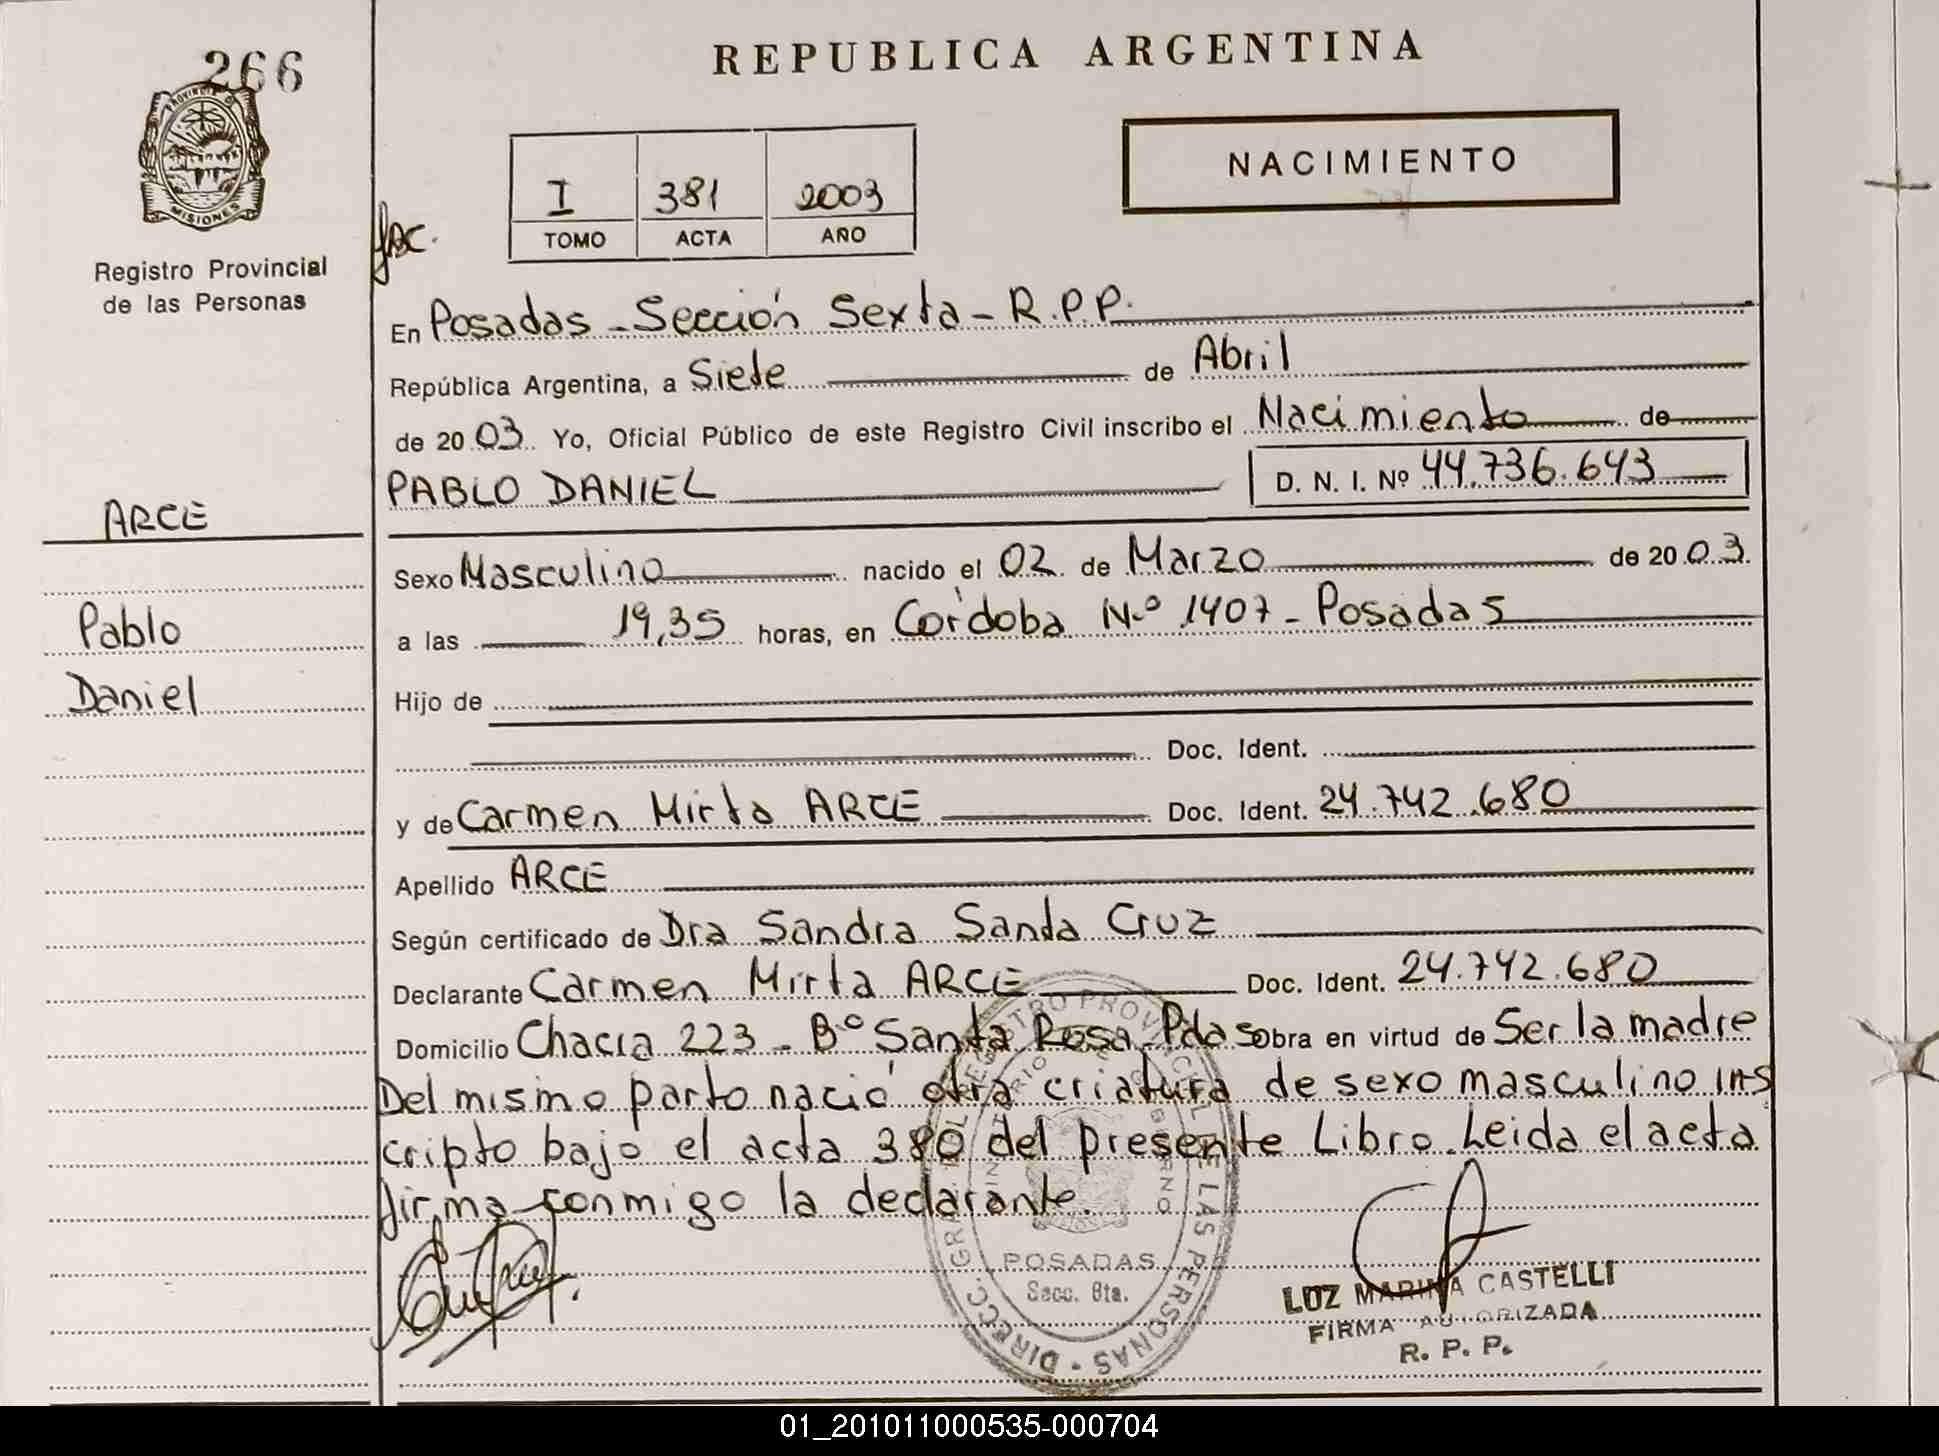 266
REPUBLICA ARGENTINA
PROVINCIA D
MISIONES
Registro Provincial
de las Personas
I 381 2003
TOMO ACTA AÑO
NACIMIENTO
En Posadas - Sección Sexta - R.P.P.
República Argentina, a Siete de Abril
de 20 03. Yo, Oficial Público de este Registro Civil inscribo el Nacimiento de
PABLO DANIEL D. N. I. Nº 44.736.643
ARCE
Sexo Masculino nacido el 02 de Marzo de 20 03.
Pablo
a las 19,35 horas, en Córdoba Nº 1407 - Posadas
Daniel
Hijo de
Doc. Ident.
y de Carmen Mirta ARCE Doc. Ident. 24.742.680
Apellido ARCE
Según certificado de Dra Sandra Santa Cruz
Declarante Carmen Mirta ARCE Doc. Ident. 24.742.680
Domicilio Chacra 223 - Bº Santa Rosa - Pdas obra en virtud de Ser la madre
Del mismo parto nació otra criatura de sexo masculino ins
cripto bajo el acta 380 del presente Libro. Leida el acta
firma conmigo la declarante.
DIRECC. GRAL. DEL REGISTRO PROVINCIAL DE LAS PERSONAS
POSADAS
Secc. 6ta.
LUZ MARINA CASTELLI
FIRMA AUTORIZADA
R. P. P.
01_201011000535-000704